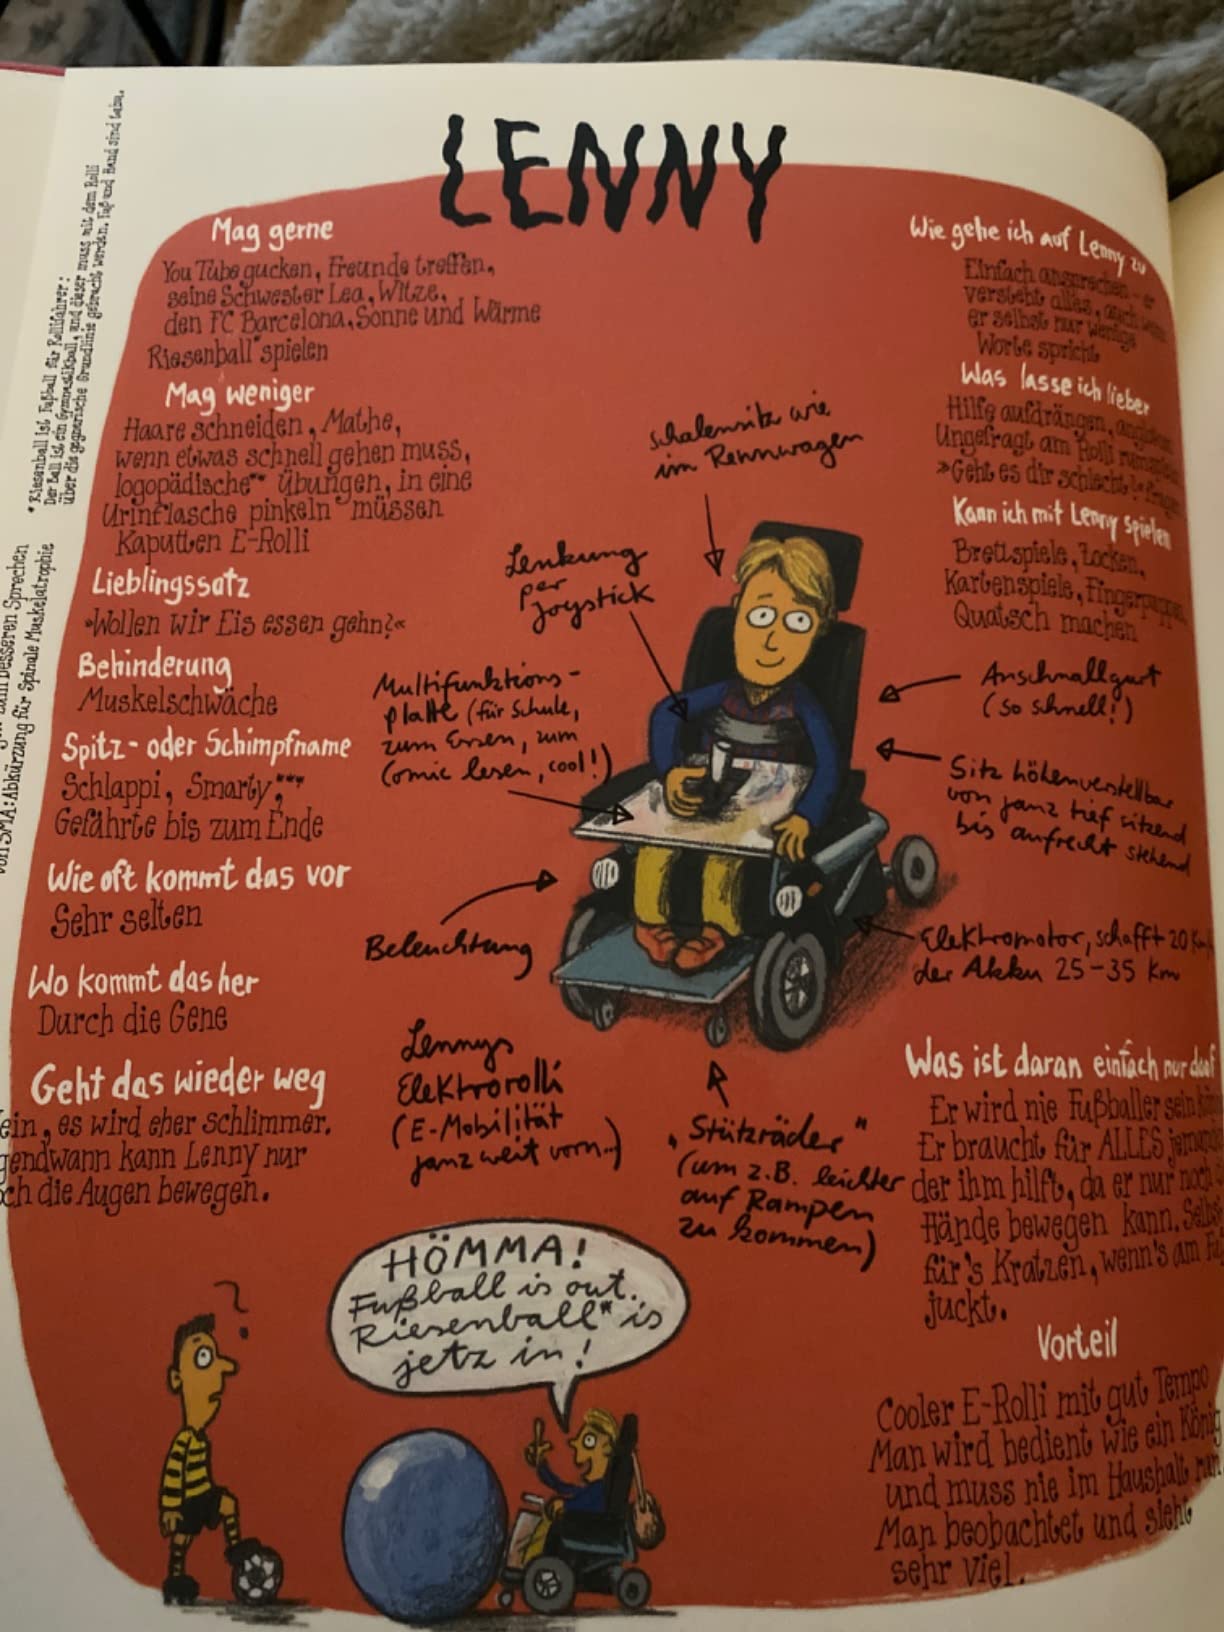 LENNY
Mag gerne
You Tube gucken, Freunde treffen,
seine Schwester Lea, Witze,
den FC Barcelona, Sonne und Wärme
Riesenball* spielen
Mag weniger
Haare schneiden, Mathe,
wenn etwas schnell gehen muss,
logopädische** Übungen, in eine
Urinflasche pinkeln müssen
Kaputten E-Rolli
Lieblingssatz
»Wollen wir Eis essen gehn?«
Behinderung
Muskelschwäche
Spitz- oder Schimpfname
Schlappi, Smarty,***
Gefährte bis zum Ende
Wie oft kommt das vor
Sehr selten
Wo kommt das her
Durch die Gene
Geht das wieder weg
ein, es wird eher schlimmer.
gendwann kann Lenny nur
ch die Augen bewegen.
* Riesenball ist Fußball für Rollifahrer:
Der Ball ist ein Gymnastikball, und dieser muss mit dem Rolli
über die gegnerische Grundlinie gebracht werden. Fuß und Hand sind tabu.
zum besseren Sprechen
von SMA: Abkürzung für Spinale Muskelatrophie
Schalensitz wie
im Rennwagen
Lenkung
per
Joystick
Multifunktions-
platte (für Schule,
zum Essen, zum
Comic lesen, cool!)
Beleuchtung
Lennys
Elektrorolli
(E-Mobilität
ganz weit vorn..)
Anschnallgurt
(so schnell!)
Sitz höhenverstellbar
von ganz tief sitzend
bis aufrecht stehend
Elektromotor, schafft 20 Km/
der Akku 25-35 Km
"Stützräder"
(um z.B. leichter
auf Rampen
zu kommen)
Wie gehe ich auf Lenny zu
Einfach ansprechen – er
versteht alles, auch wenn
er selbst nur wenige
Worte spricht
Was lasse ich lieber
Hilfe aufdrängen,
Ungefragt am Rolli
»Geht es dir schlecht?«
Kann ich mit Lenny spielen
Brettspiele, Zocken,
Kartenspiele, Fingerpuppen,
Quatsch machen
Was ist daran einfach nur doof
Er wird nie Fußballer sein
Er braucht für ALLES
der ihm hilft, da er nur noch
Hände bewegen kann. Selbst
für's Kratzen, wenn's am
juckt.
Vorteil
Cooler E-Rolli mit gut Tempo
Man wird bedient wie ein König
und muss nie im Haushalt
Man beobachtet und sieht
sehr viel.
?
HÖMMA!
Fußball is out.
Riesenball* is
jetz in!